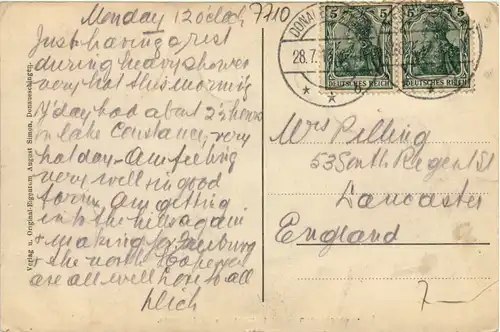 Monday 12 o'clock
7710
Just having a rest
during heavy shower
very hot this morning
Y'day had about 2½ hours
on lake Constance, very
hot day - Am feeling
very well in good
form, am getting
into the hills again
+ making for Freiburg
+ the north hope you
are all well Love to all
Dick
Verlag u. Original-Eigentum August Simon, Donaueschingen.
DONAU
28.7.
5 5
DEUTSCHES REICH
5 5
DEUTSCHES REICH
Mrs Pilling
53 South Regent St
Lancaster
England
7